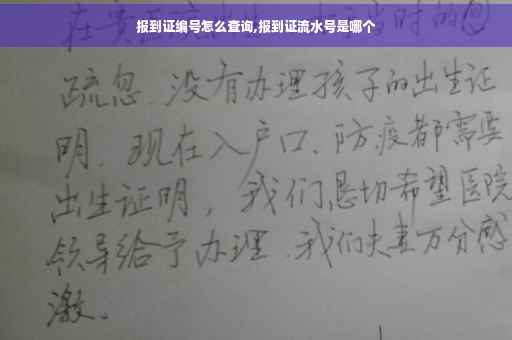 报到证编号怎么查询,报到证流水号是哪个
疏忽.没有办理孩子的出生证
明.现在入户口、防疫都需要
出生证明，我们恳切希望医院
领导给予办理.我们夫妻万分感
激。